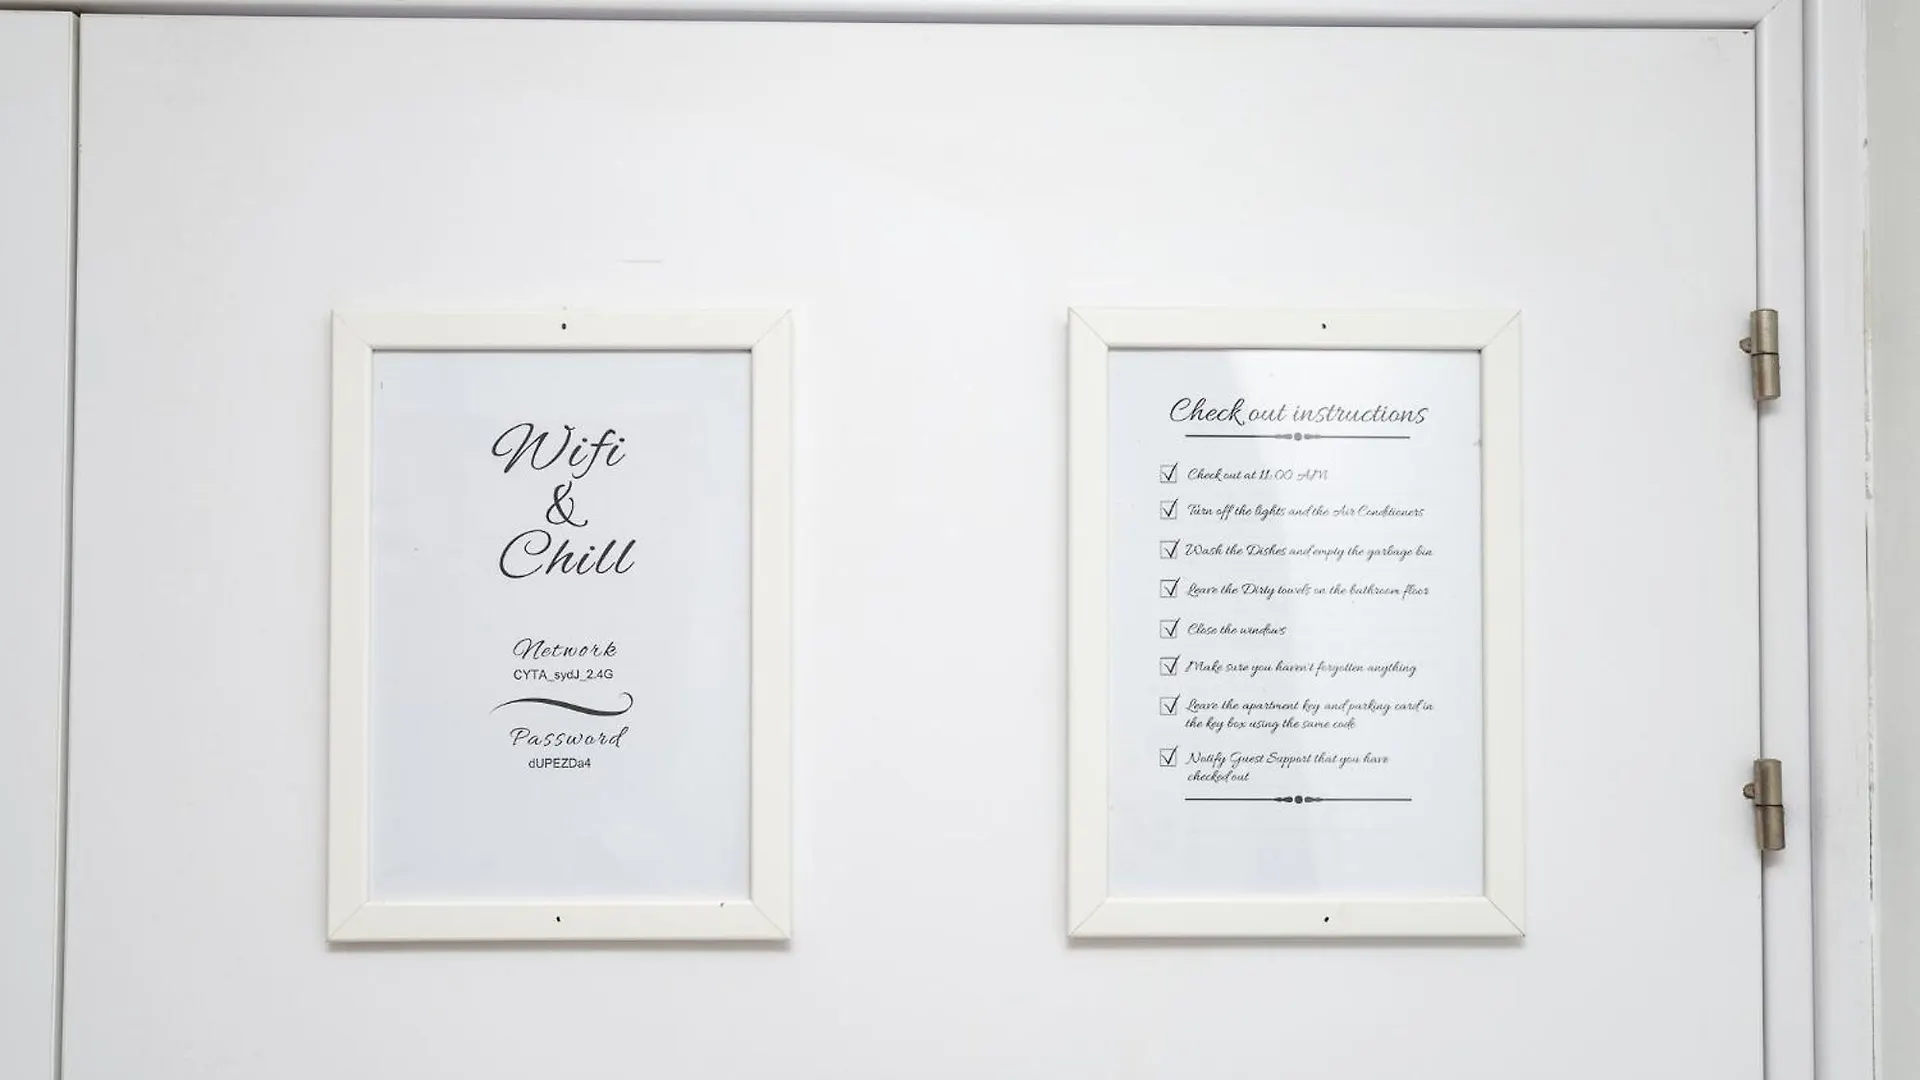 Wifi
&
Chill
Network
CYTA_sydJ_2.4G
Password
dUPEZDa4
Check out instructions
Check out at 11:00 AM
Turn off the lights and the Air Conditioners
Wash the Dishes and empty the garbage bin
Leave the Dirty towels on the bathroom floor
Close the windows
Make sure you haven't forgotten anything
Leave the apartment key and parking card in
the key box using the same code
Notify Guest Support that you have
checked out